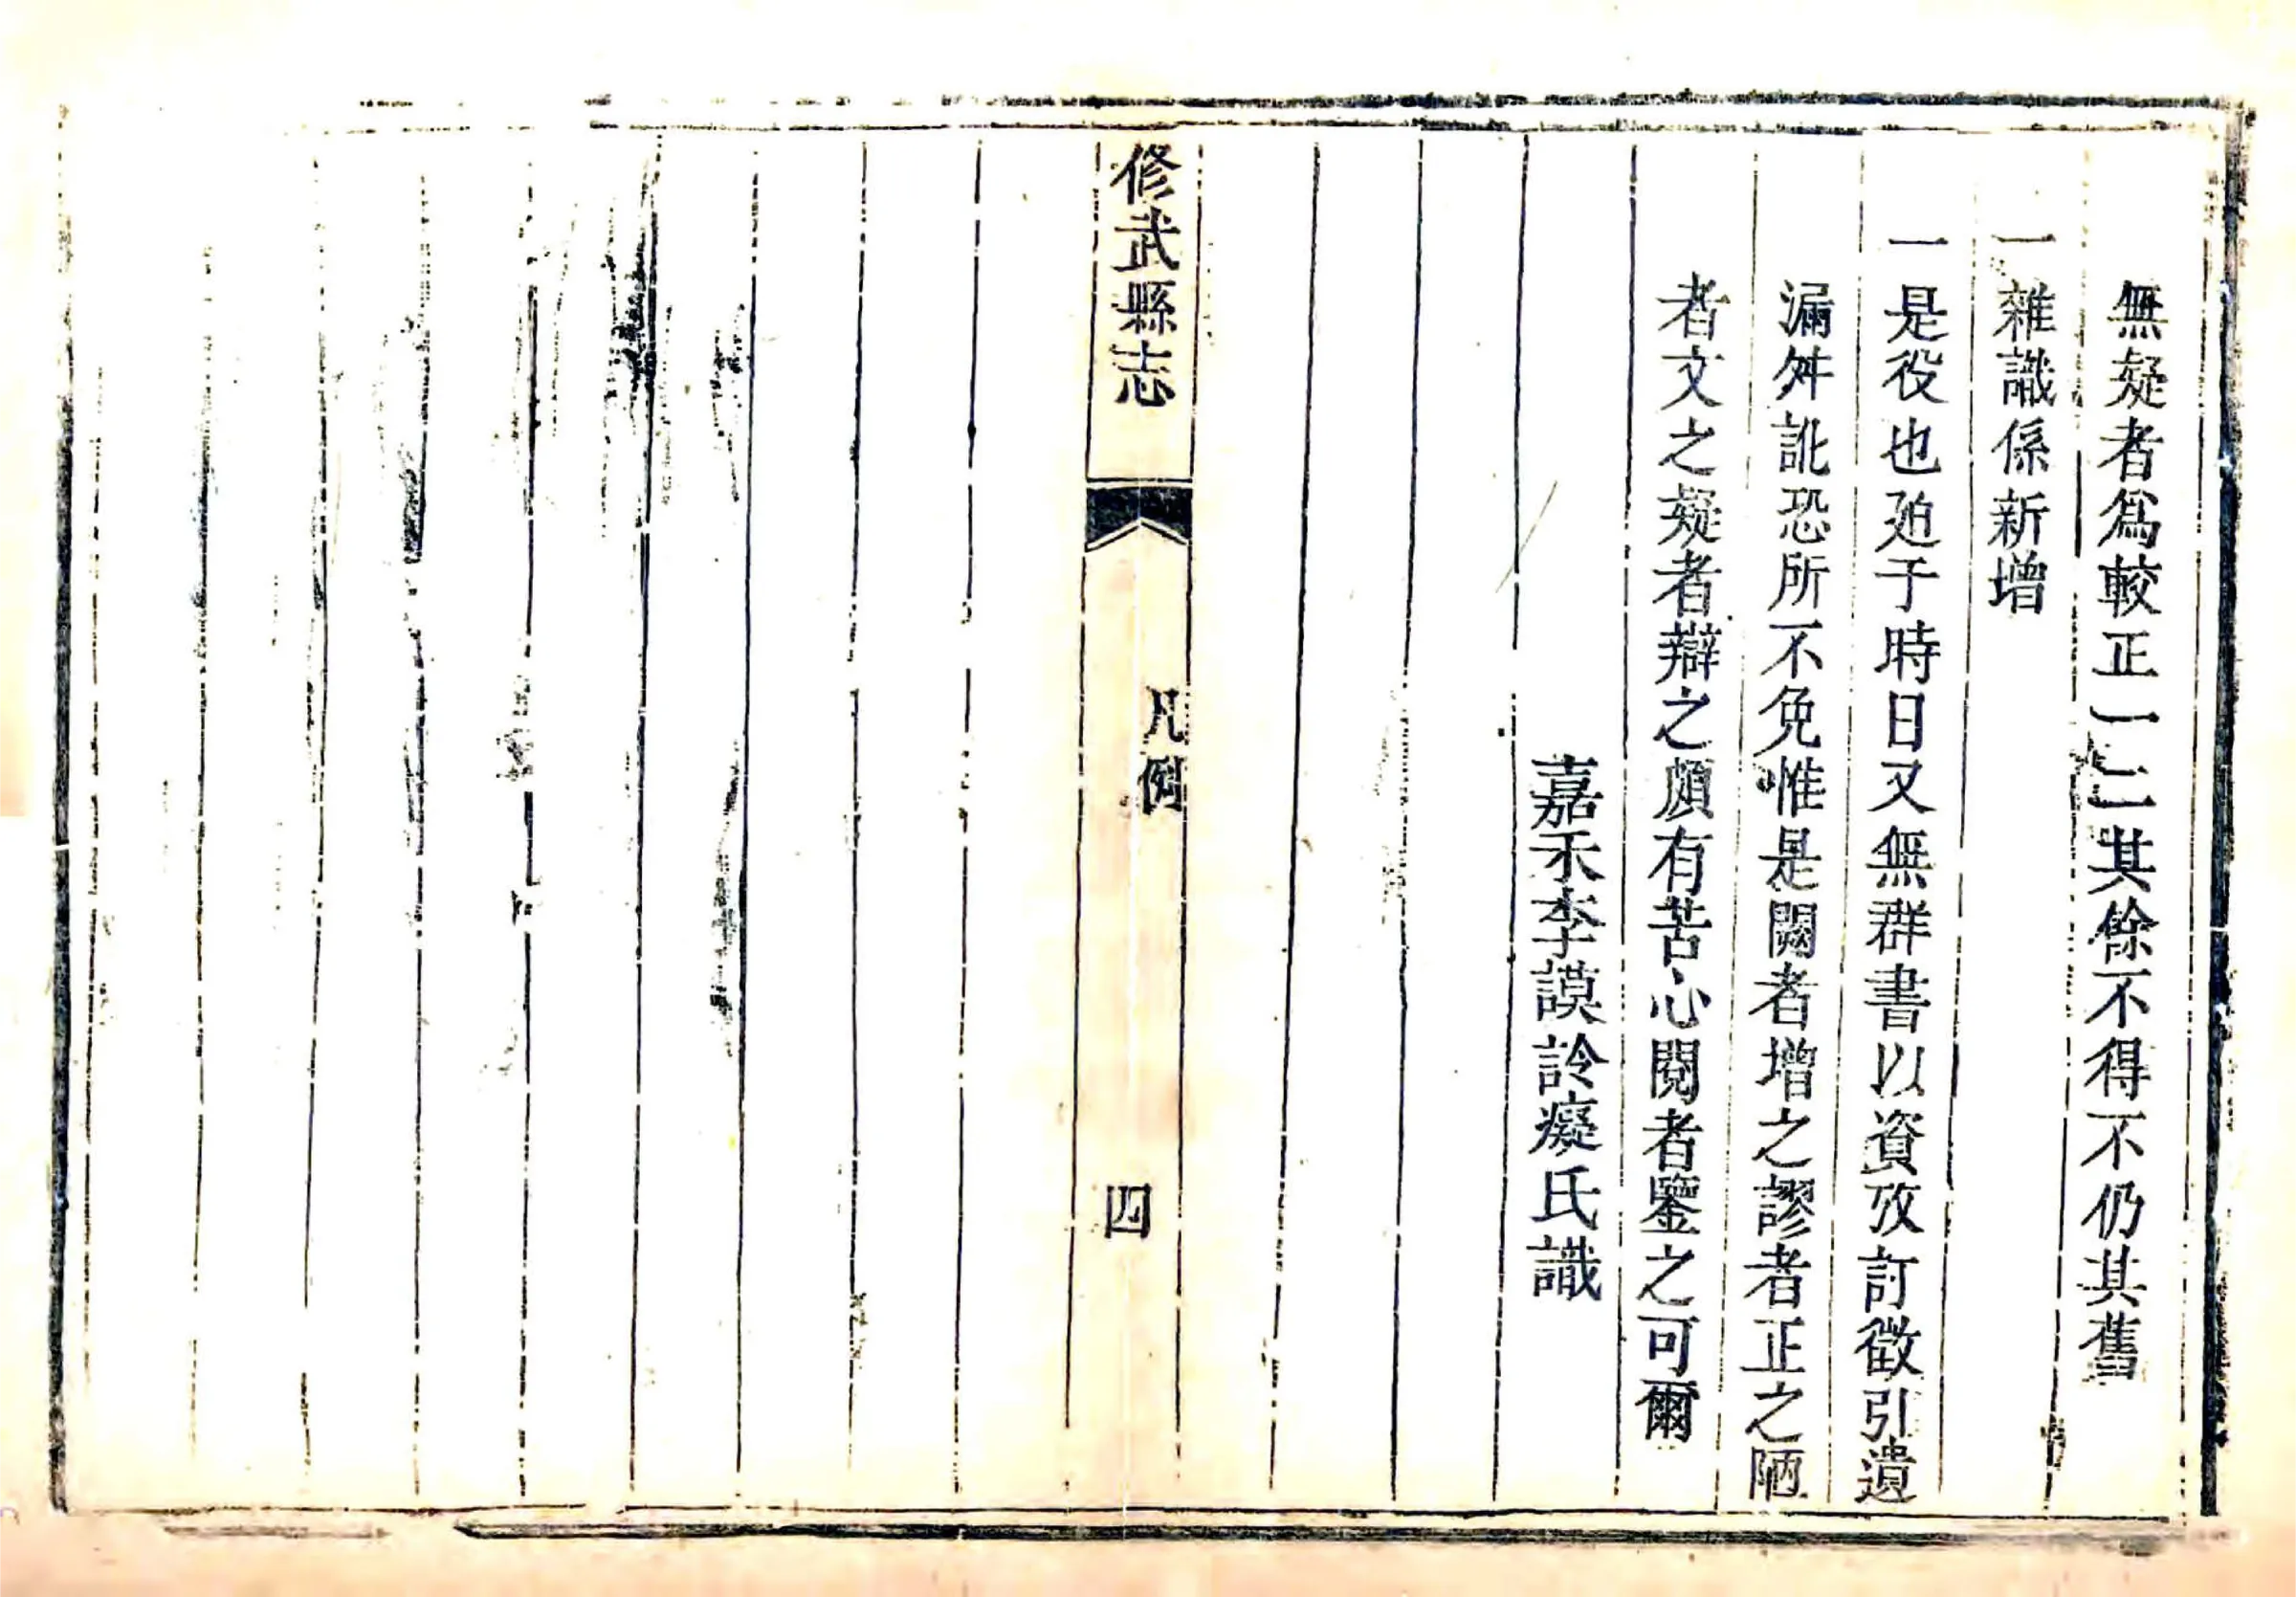 無疑者爲較正一二其餘不得不仍其舊
一雜識係新增
一是役也廹于時日又無群書以資攷訂徵引遺
漏舛訛恐所不免惟是闕者增之謬者正之陋
者文之疑者辯之頗有苦心閱者鑒之可爾
嘉禾李謨詅癡氏識
修武縣志
凡例
四